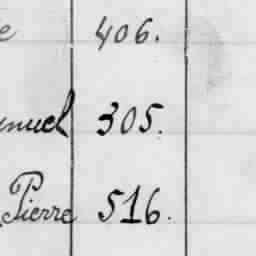 e 406.
muel 305.
Pierre 516.